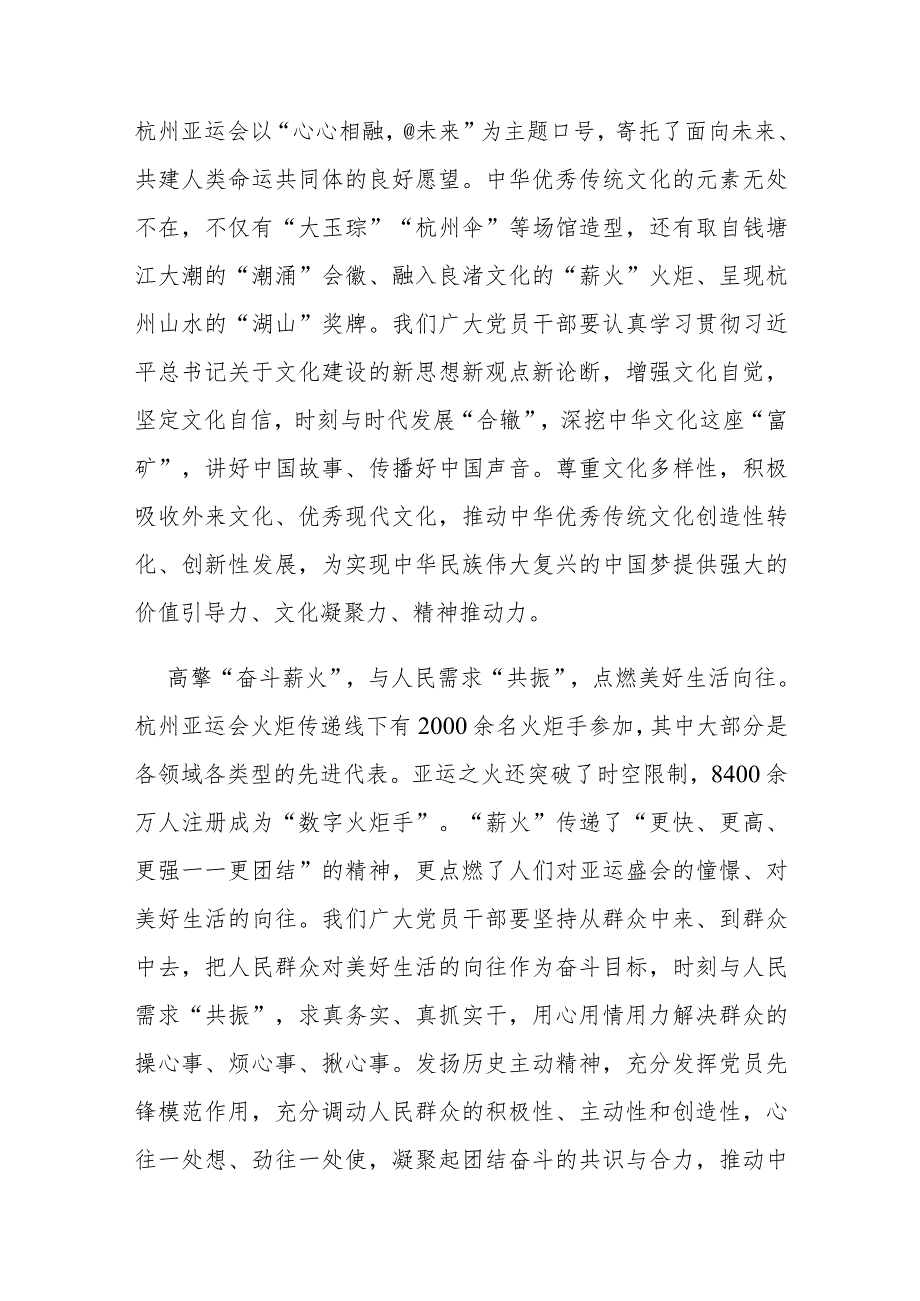 杭州亚运会以“心心相融，@未来”为主题口号，寄托了面向未来、
共建人类命运共同体的良好愿望。中华优秀传统文化的元素无处
不在，不仅有“大玉琮”“杭州伞”等场馆造型，还有取自钱塘
江大潮的“潮涌”会徽、融入良渚文化的“薪火”火炬、呈现杭
州山水的“湖山”奖牌。我们广大党员干部要认真学习贯彻习近
平总书记关于文化建设的新思想新观点新论断，增强文化自觉，
坚定文化自信，时刻与时代发展“合辙”，深挖中华文化这座“富
矿”，讲好中国故事、传播好中国声音。尊重文化多样性，积极
吸收外来文化、优秀现代文化，推动中华优秀传统文化创造性转
化、创新性发展，为实现中华民族伟大复兴的中国梦提供强大的
价值引导力、文化凝聚力、精神推动力。
高擎“奋斗薪火”，与人民需求“共振”，点燃美好生活向往。
杭州亚运会火炬传递线下有 2000 余名火炬手参加，其中大部分是
各领域各类型的先进代表。亚运之火还突破了时空限制，8400 余
万人注册成为“数字火炬手”。“薪火”传递了“更快、更高、
更强一一更团结”的精神，更点燃了人们对亚运盛会的憧憬、对
美好生活的向往。我们广大党员干部要坚持从群众中来、到群众
中去，把人民群众对美好生活的向往作为奋斗目标，时刻与人民
需求“共振”，求真务实、真抓实干，用心用情用力解决群众的
操心事、烦心事、揪心事。发扬历史主动精神，充分发挥党员先
锋模范作用，充分调动人民群众的积极性、主动性和创造性，心
往一处想、劲往一处使，凝聚起团结奋斗的共识与合力，推动中